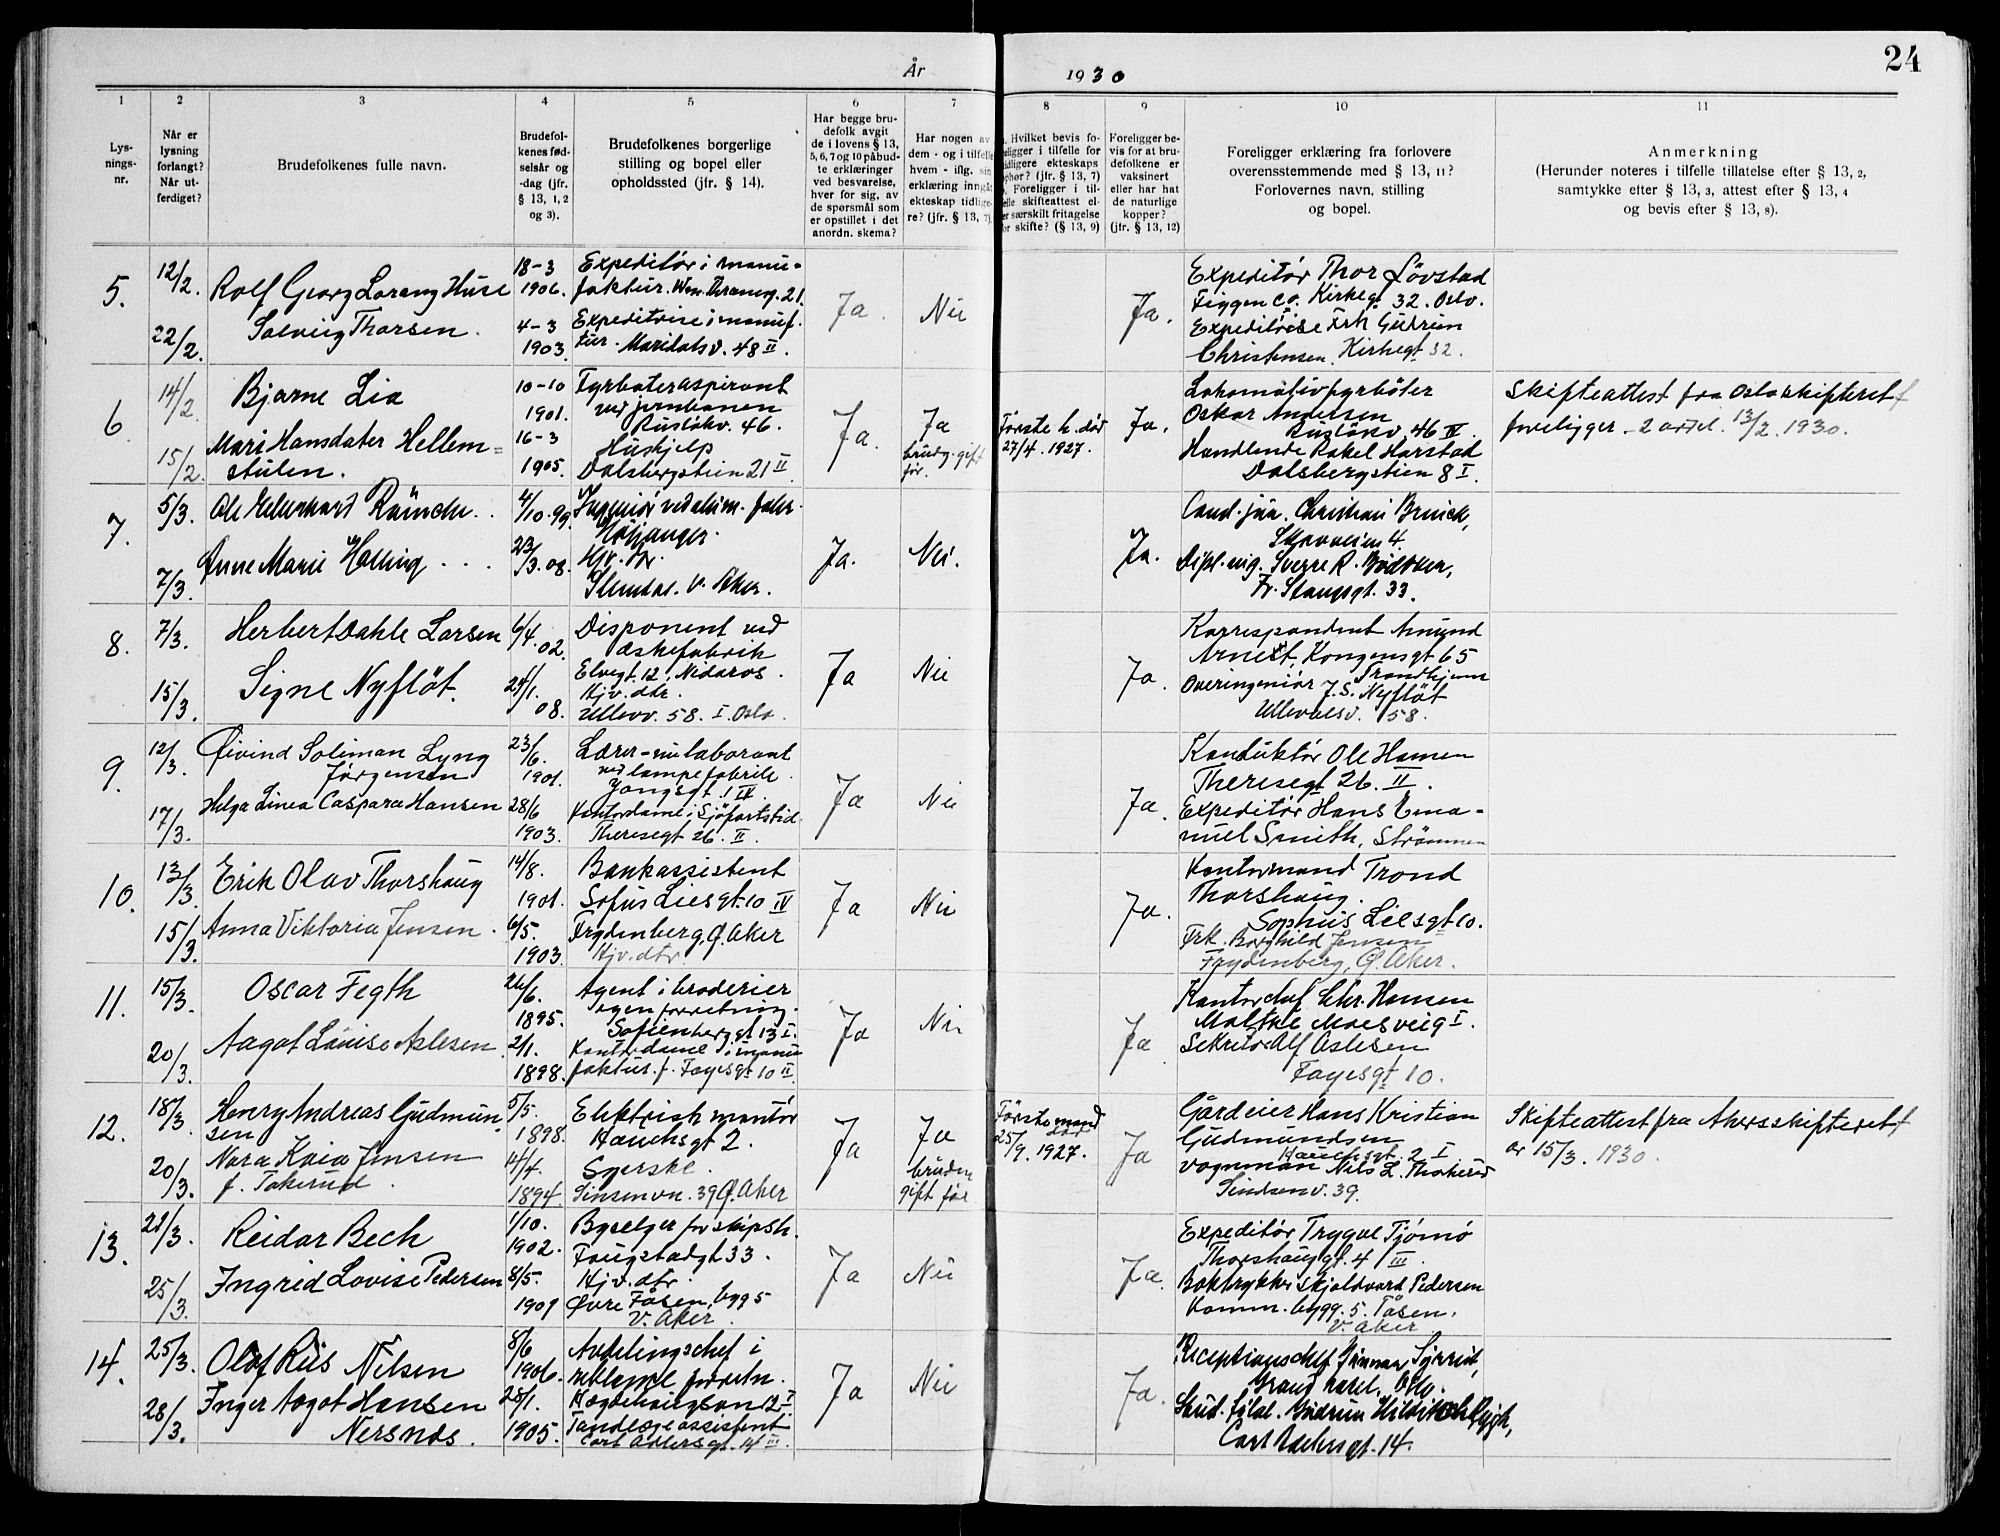 24
År 1930
1 2 3 4 5 6 7 8 9 10 11
Lys-
nings-
nr.
Når er
lysning
forlangt?
Når ut-
ferdiget?
Brudefolkenes fulle navn.
Brudefol-
kenes fød-
selsår og
-dag (jfr.
§ 13, 1, 2
og 3).
Brudefolkenes borgerlige
stilling og bopel eller
opholdssted (jfr. § 14).
Har begge bru-
defolk avgit
de i lovens § 13,
5, 6, 7 og 10 påbud-
te erklæringer
ved besvarelse,
hver for sig, av
de spørsmål som
er opstillet i det
anordn. skema?
Har nogen av
dem - og i tilfelle
hvem - iflg. sin
erklæring inngåt
ekteskap tidlige-
re? (jfr. § 13, 7).
Hvilket bevis fo-
religger i tilfelle for
tidligere ekteskaps
ophør? (jfr. § 13, 7)
Foreligger i til-
felle skifteattest el-
er særskilt fritagelse
for skifte? (§ 13, 9)
Foreligger be-
vis for at bru-
defolkene er
vaksinert
eller har hat
de naturlige
kopper?
(jfr. § 13, 12)
Foreligger erklæring fra forlovere
overensstemmende med § 13, 11?
Forlovernes navn, stilling
og bopel.
Anmerkning
(Herunder noteres i tilfelle tillatelse efter § 13, 2,
samtykke efter § 13, 3, attest efter § 13, 4
og bevis efter § 13, 8).
5.
12/2.
22/2.
Rolf Georg Lorang Huse
Solveig Thorsen.
18-3
1906.
4-3
1903.
Expeditör i manu-
faktur. Wm. Thranesg. 21.
Expeditrise i manuf.
tur. Maridalsv. 48 II.
Ja.
Nei
Ja.
Expeditör Thor Lövstad
Figgen Co. Kirkeg. 32. Oslo.
Expeditrise Frk Gudrun
Christensen. Kirkegt 32.
6.
14/2
15/2.
Bjarne Lia
Mari Hansdater Hellem=
stulen.
10-10
1901.
16-3
1905.
Fyrböteraspirant
ved jernbanen
Rusløkv. 46.
Hushjelp
Dalsbergstien 21 II
Ja.
Ja
brudg. gift
før.
Første h. död
27/4. 1927.
Ja.
Lokomotivfyrböter
Oskar Andersen
Rusløkv 46 IV.
Handlende Rakel Harstad
Dalsbergstien 8 I.
Skifteattest fra Oslo skifterett
foreligger - 2 avdel. 13/2. 1930.
7.
5/3.
7/3.
Anne Marie Holling
4/10. 99.
23/3. 08.
Ingeniör ved alum. fabr.
Höyanger.
Hjv. dtr.
Slemdal. V. Aker.
Ja.
Nei.
Ja.
Cand. jur. Christian Brinck,
Skovveien 4.
Dipl. ing. Sverre R. Bödtker,
Fr. Stangsgt. 33.
8.
7/3.
15/3.
Herbert Dahle Larsen
Signe Nyflöt.
6/4. 02.
24/1. 08.
Disponent ved
æskefabrik
Elvegt. 12, Nidaros.
Hjv. dtr.
Ullevv. 58. I. Oslo.
Ja
Nei
Ja.
Korrespondent Amund
Arnest, Kongensgt 65
Trondhjem
Overingeniör J. S. Nyflöt
Ullevålsv. 58.
9.
12/3.
17/3.
Øivind Soliman Lyng
Jørgensen
Helga Linea Caspara Hansen
23/6.
1901.
28/6
1903.
Lærer-nu laborant
ved lampefabrik.
Yongsgt. 1 IV
Kontordame i Sjöfartstid.
Theresegt 26. II.
Ja
Nei
Ja.
Konduktör Ole Hansen
Theresegt 26. II.
Expeditör Hans Ema-
nuel Smith, Strömmen
10.
13/3.
15/3.
Erik Olav Thorshaug
Anna Viktoria Jensen.
14/8.
1901.
6/5.
1903.
Bankassistent
Sofus Liesgt 10 IV
Frydenberg, Ø. Aker
Hjv. dtr.
Ja
Nei
Ja.
Kontormand Trond
Thorshaug.
Sophus Liesgt 10.
Frk. Borghild Jensen
Frydenberg, Ø. Aker.
11.
15/3.
20/3.
Oscar Fegth
Aagot Louise Aslesen
26/6.
1895.
2/1.
1898.
Agent i broderier
egen forretning.
Sofienberggt 13 I.
Kontordame i manu
faktur. f. Fayesgt 10 II.
Ja
Nei
Ja
Kontorchef Chr. Hansen
Moltke Moesvei g I.
Sekretær Alf Aslesen
Fayesgt 10.
12.
18/3.
20/3.
Henry Andreas Gudmun-
sen
Nora Kaia Jensen
f. Tokerud.
5/5.
1898.
14/4.
1894.
Elektrisk montör
Hauchsgt 2.
Syerske.
Sinsenvn. 39 Ø. Aker
Ja
Ja
bruden
gift før
Første mand
död
25/9. 1927.
Ja
Gårdeier Hans Kristian
Gudmundsen
Hauchsgt. 2 I.
Vognman Nils L. Thokerud
Sindsenv. 39.
Skifteattest fra Akers skifterett
av 15/3. 1930.
13.
21/3.
25/3.
Reidar Bech
Ingrid Lovise Pedersen
1/10.
1902.
8/5.
1909
Byselger for skipsh.
Faugstadgt 33.
Hjv. dtr.
Øvre Tåsen, bygg 5
V. Aker.
Ja
Nei
Ja.
Expeditör Trygve Tjömö
Thorshauggt. 4 III.
Boktrykker Skjoldvard Pedersen
Komm. bygg. 5. Tåsen.
V. Aker
14.
25/3.
28/3.
Olaf Riis Nilsen
Inger Aagot Hansen
Nersnæs.
8/6
1906.
28/1.
1905.
Avdelingschef i
Hægdehaugsvn 12 I
Tandlægeassistent
Carl Adlersgt. 14 III.
Ja
Nei
Ja.
Receptionschef Gunnar
Grand hotel, Oslo.
Stud. filol. Gudrun
Carl Adlersgt. 14.